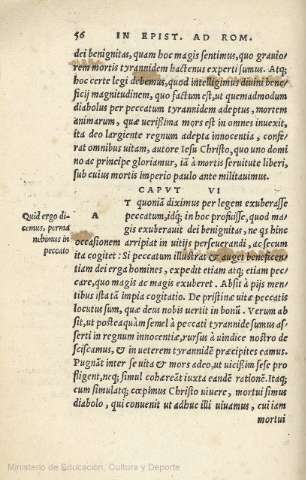 56 IN EPIST. AD ROM.
dei benignitas, quam hoc magis sentimus, quo grauio/
rem mortis tyrannidem hactenus experti sumus. Atq;
hoc certe legi debemus, quod intelligimus diuini bene/
ficij magnitudinem, quo factum est, ut quemadmodum
diabolus per peccatum tyrannidem adeptus, mortem
animarum, quæ uerissima mors est in omnes inuexit,
ita deo largiente regnum adepta innocentia, confe/
rat omnibus uitam, autore Iesu Christo, quo uno domi
no ac principe gloriamur, iã à mortis seruitute liberi,
sub cuius mortis imperio paulo ante militauimus.
CAPVT VI
Quid ergo di
cemus, perma
nebimus in
peccato
AT quoniã diximus per legem exuberasse
peccatum, idq; in hoc profuisse, quod ma/
gis exuberauit dei benignitas, ne qs hinc
occasionem arripiat in uitijs perseuerandi, ac secum
ita cogitet: Si peccatum illustrat & auget beneficen/
tiam dei erga homines, expedit etiam atq; etiam pec/
care, quo magis ac magis exuberet. Absit à pijs men/
tibus istæc tã impia cogitatio. De pristinæ uitæ peccatis
locutus sum, quæ deus nobis uertit in bonũ. Verum ab
sit, ut posteaquàm semel à peccati tyrannide sumus as/
serti in regnum innocentiæ, rursus à uindice nostro de
sciscamus, & in ueterem tyrannidẽ præcipites eamus.
Pugnãt inter se uita & mors adeo, ut uicissim sese pro
fligent, neq; simul cohæreãt iuxta eandẽ rationẽ. Itaq;
cum simulatq; cœpimus Christo uiuere, mortui simus
diabolo, qui conuenit ut adhuc illi uiuamus, cui iam
mortui
Ministerio de Educación, Cultura y Deporte